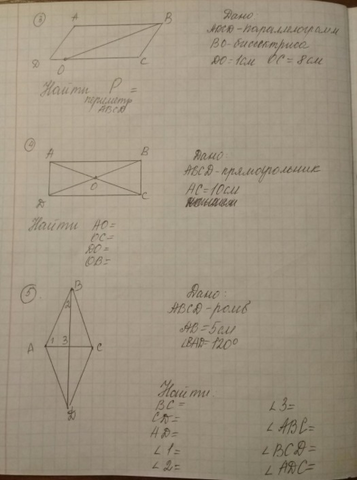 ③
A B
D O C
Дано
ABCD-параллелограмм
BO-биссектриса
DO=1см OC=8см
Найти P =
периметр
ABCD
④
A B
O
D C
Дано:
ABCD-прямоугольник
AC=10см
Найти AO=
OC=
DO=
OB=
⑤
B
2
A 1 3 C
D
Дано:
ABCD-ромб
AB=5см
∠BAD=120°
Найти:
BC=
CD=
AD=
∠1=
∠2=
∠3=
∠ABC=
∠BCD=
∠ADC=